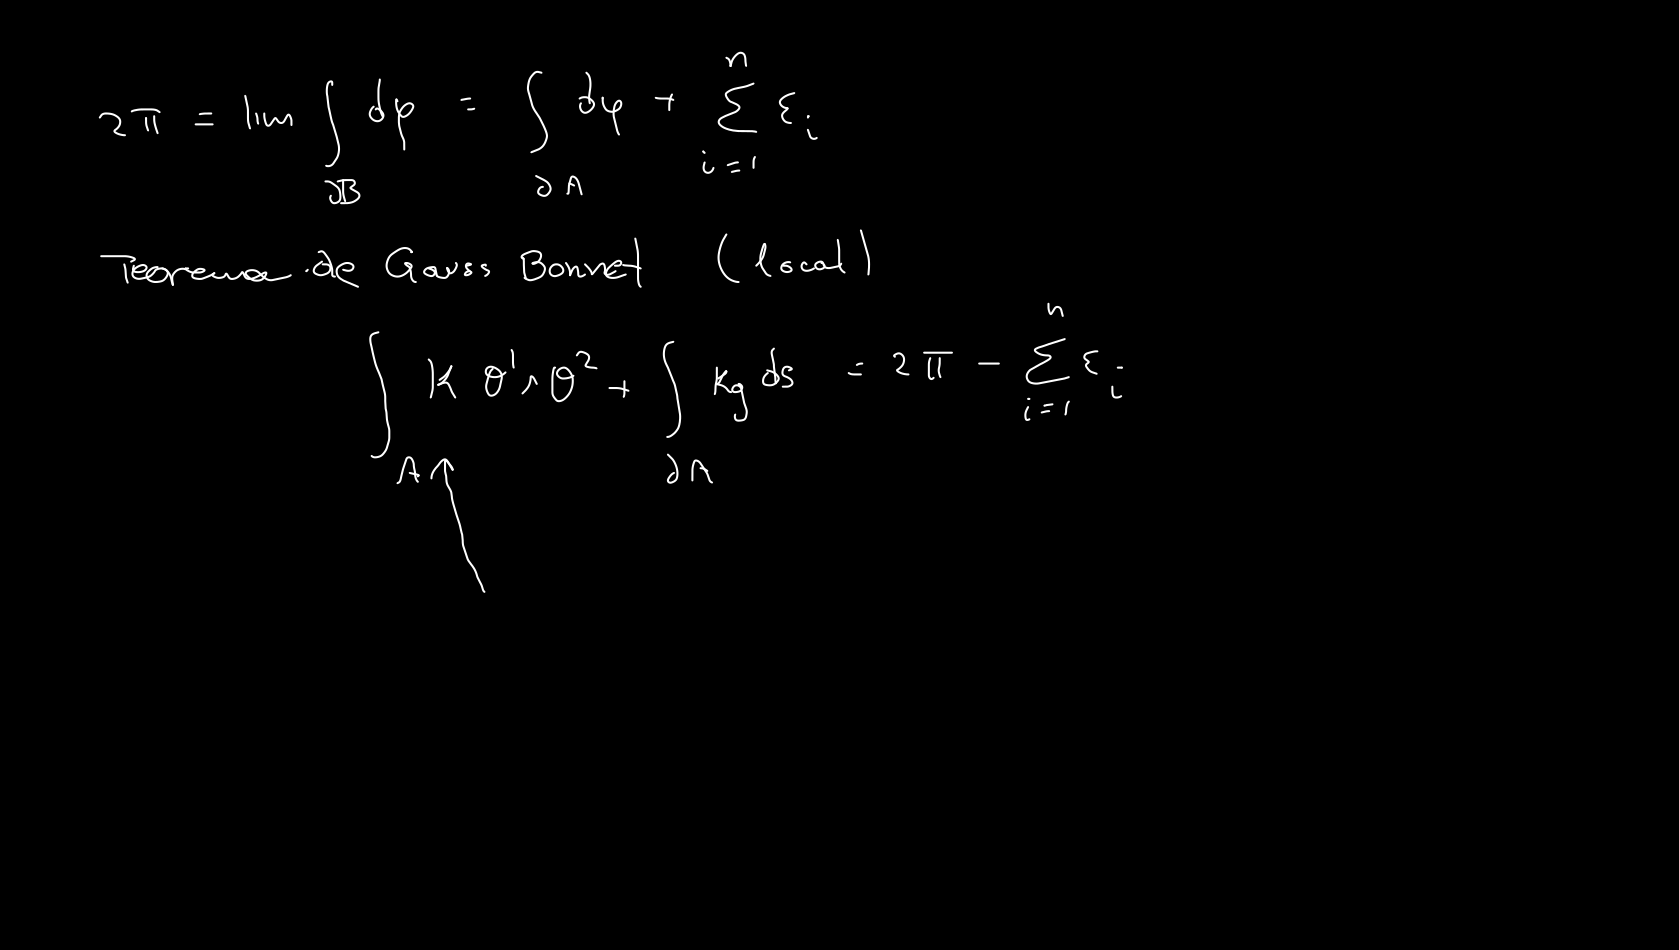 2π = lim ∫_{∂B} dφ = ∫_{∂A} dφ + ∑_{i=1}^{n} ε_i
Teorema de Gauss Bonnet (local)
∫_A K θ^1 ∧ θ^2 + ∫_{∂A} kg ds = 2π - ∑_{i=1}^{n} ε_i